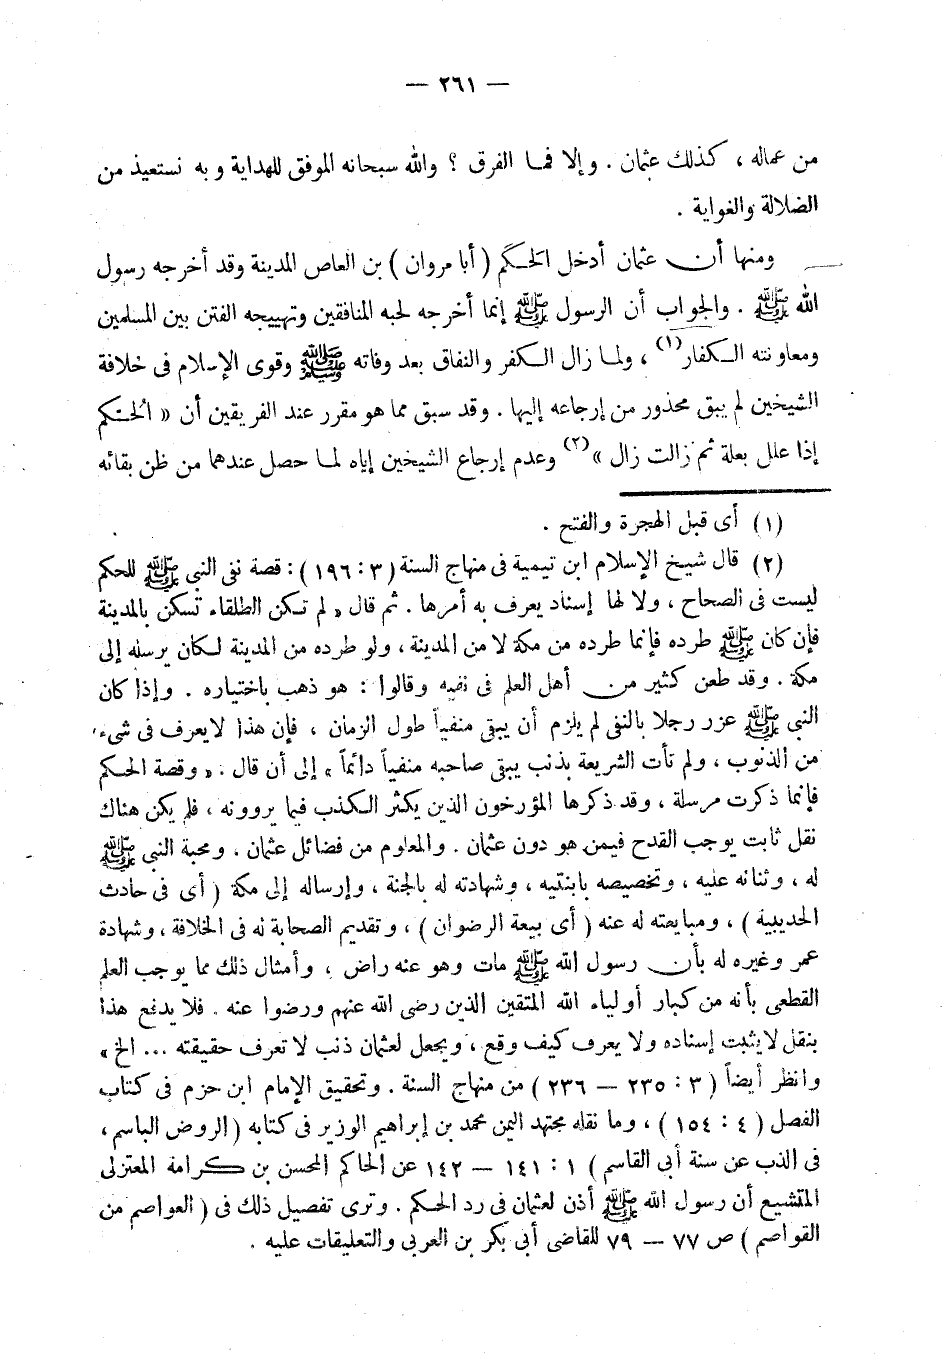 — ٢٦١ —
من عماله ، كذلك عثمان . وإلا فما الفرق ؟ والله سبحانه الموفق للهداية وبه نستعيذ من
الضلالة والغواية .
ومنها أن عثمان أدخل الحكم ( أبا مروان ) بن العاص المدينة وقد أخرجه رسول
الله ﷺ . والجواب أن الرسول ﷺ إنما أخرجه لحبه المنافقين وتهييجه الفتن بين المسلمين
ومعاونته الكفار (١) ، ولما زال الكفر والنفاق بعد وفاته ﷺ وقوى الإسلام فى خلافة
الشيخين لم يبق محذور من إرجاعه إليها . وقد سبق مما هو مقرر عند الفريقين أن « الحكم
إذا علل بعلة ثم زالت زال » (٢) وعدم إرجاع الشيخين إياه لما حصل عندهما من ظن بقائه
(١) أى قبل الهجرة والفتح .
(٢) قال شيخ الإسلام ابن تيمية فى منهاج السنة ( ٣ : ١٩٦ ) : قصة نفى النبي ﷺ للحكم
ليست فى الصحاح ، ولا لها إسناد يعرف به أمرها . ثم قال « لم تكن الطلقاء تسكن بالمدينة
فإن كان ﷺ طرده فإنما طرده من مكة لا من المدينة ، ولو طرده من المدينة لكان يرسله إلى
مكة . وقد طعن كثير من أهل العلم فى نفيه وقالوا : هو ذهب باختياره . وإذا كان
النبي ﷺ عزر رجلا بالنفى لم يلزم أن يبقى منفياً طول الزمان ، فإن هذا لا يعرف فى شىء
من الذنوب ، ولم تأت الشريعة بذنب يبقى صاحبه منفياً دائماً » إلى أن قال : « وقصة الحكم
فإنما ذكرت مرسلة ، وقد ذكرها المؤرخون الذين يكثر الكذب فيما يروونه ، فلم يكن هناك
نقل ثابت يوجب القدح فيمن هو دون عثمان . والمعلوم من فضائل عثمان . ومحبة النبي ﷺ
له ، وثنائه عليه ، وتخصيصه بابنتيه ، وشهادته له بالجنة ، وإرساله إلى مكة ( أى فى حادث
الحديبية ) ، ومبايعته له عنه ( أى بيعة الرضوان ) ، وتقديم الصحابة له فى الخلافة ، وشهادة
عمر وغيره له بأن رسول الله ﷺ مات وهو عنه راض ، وأمثال ذلك مما يوجب العلم
القطعى بأنه من كبار أولياء الله المتقين الذين رضى الله عنهم ورضوا عنه . فلا يدفع هذا
بنقل لا يثبت إسناده ولا يعرف كيف وقع ، ويجعل لعثمان ذنب لا تعرف حقيقته ... الخ »
وانظر أيضاً ( ٣ : ٢٣٥ — ٢٣٦ ) من منهاج السنة . وتحقيق الإمام ابن حزم فى كتاب
الفصل ( ٤ : ١٥٤ ) ، وما نقله مجتهد اليمن محمد بن إبراهيم الوزير فى كتابه ( الروض الباسم ،
فى الذب عن سنة أبى القاسم ) ١ : ١٤١ — ١٤٢ عن الحاكم المحسن بن كرامة المعتزلى
المتشيع أن رسول الله ﷺ أذن لعثمان فى رد الحكم . وترى تفصيل ذلك فى ( العواصم من
القواصم ) ص ٧٧ — ٧٩ للقاضى أبى بكر بن العربى والتعليقات عليه .